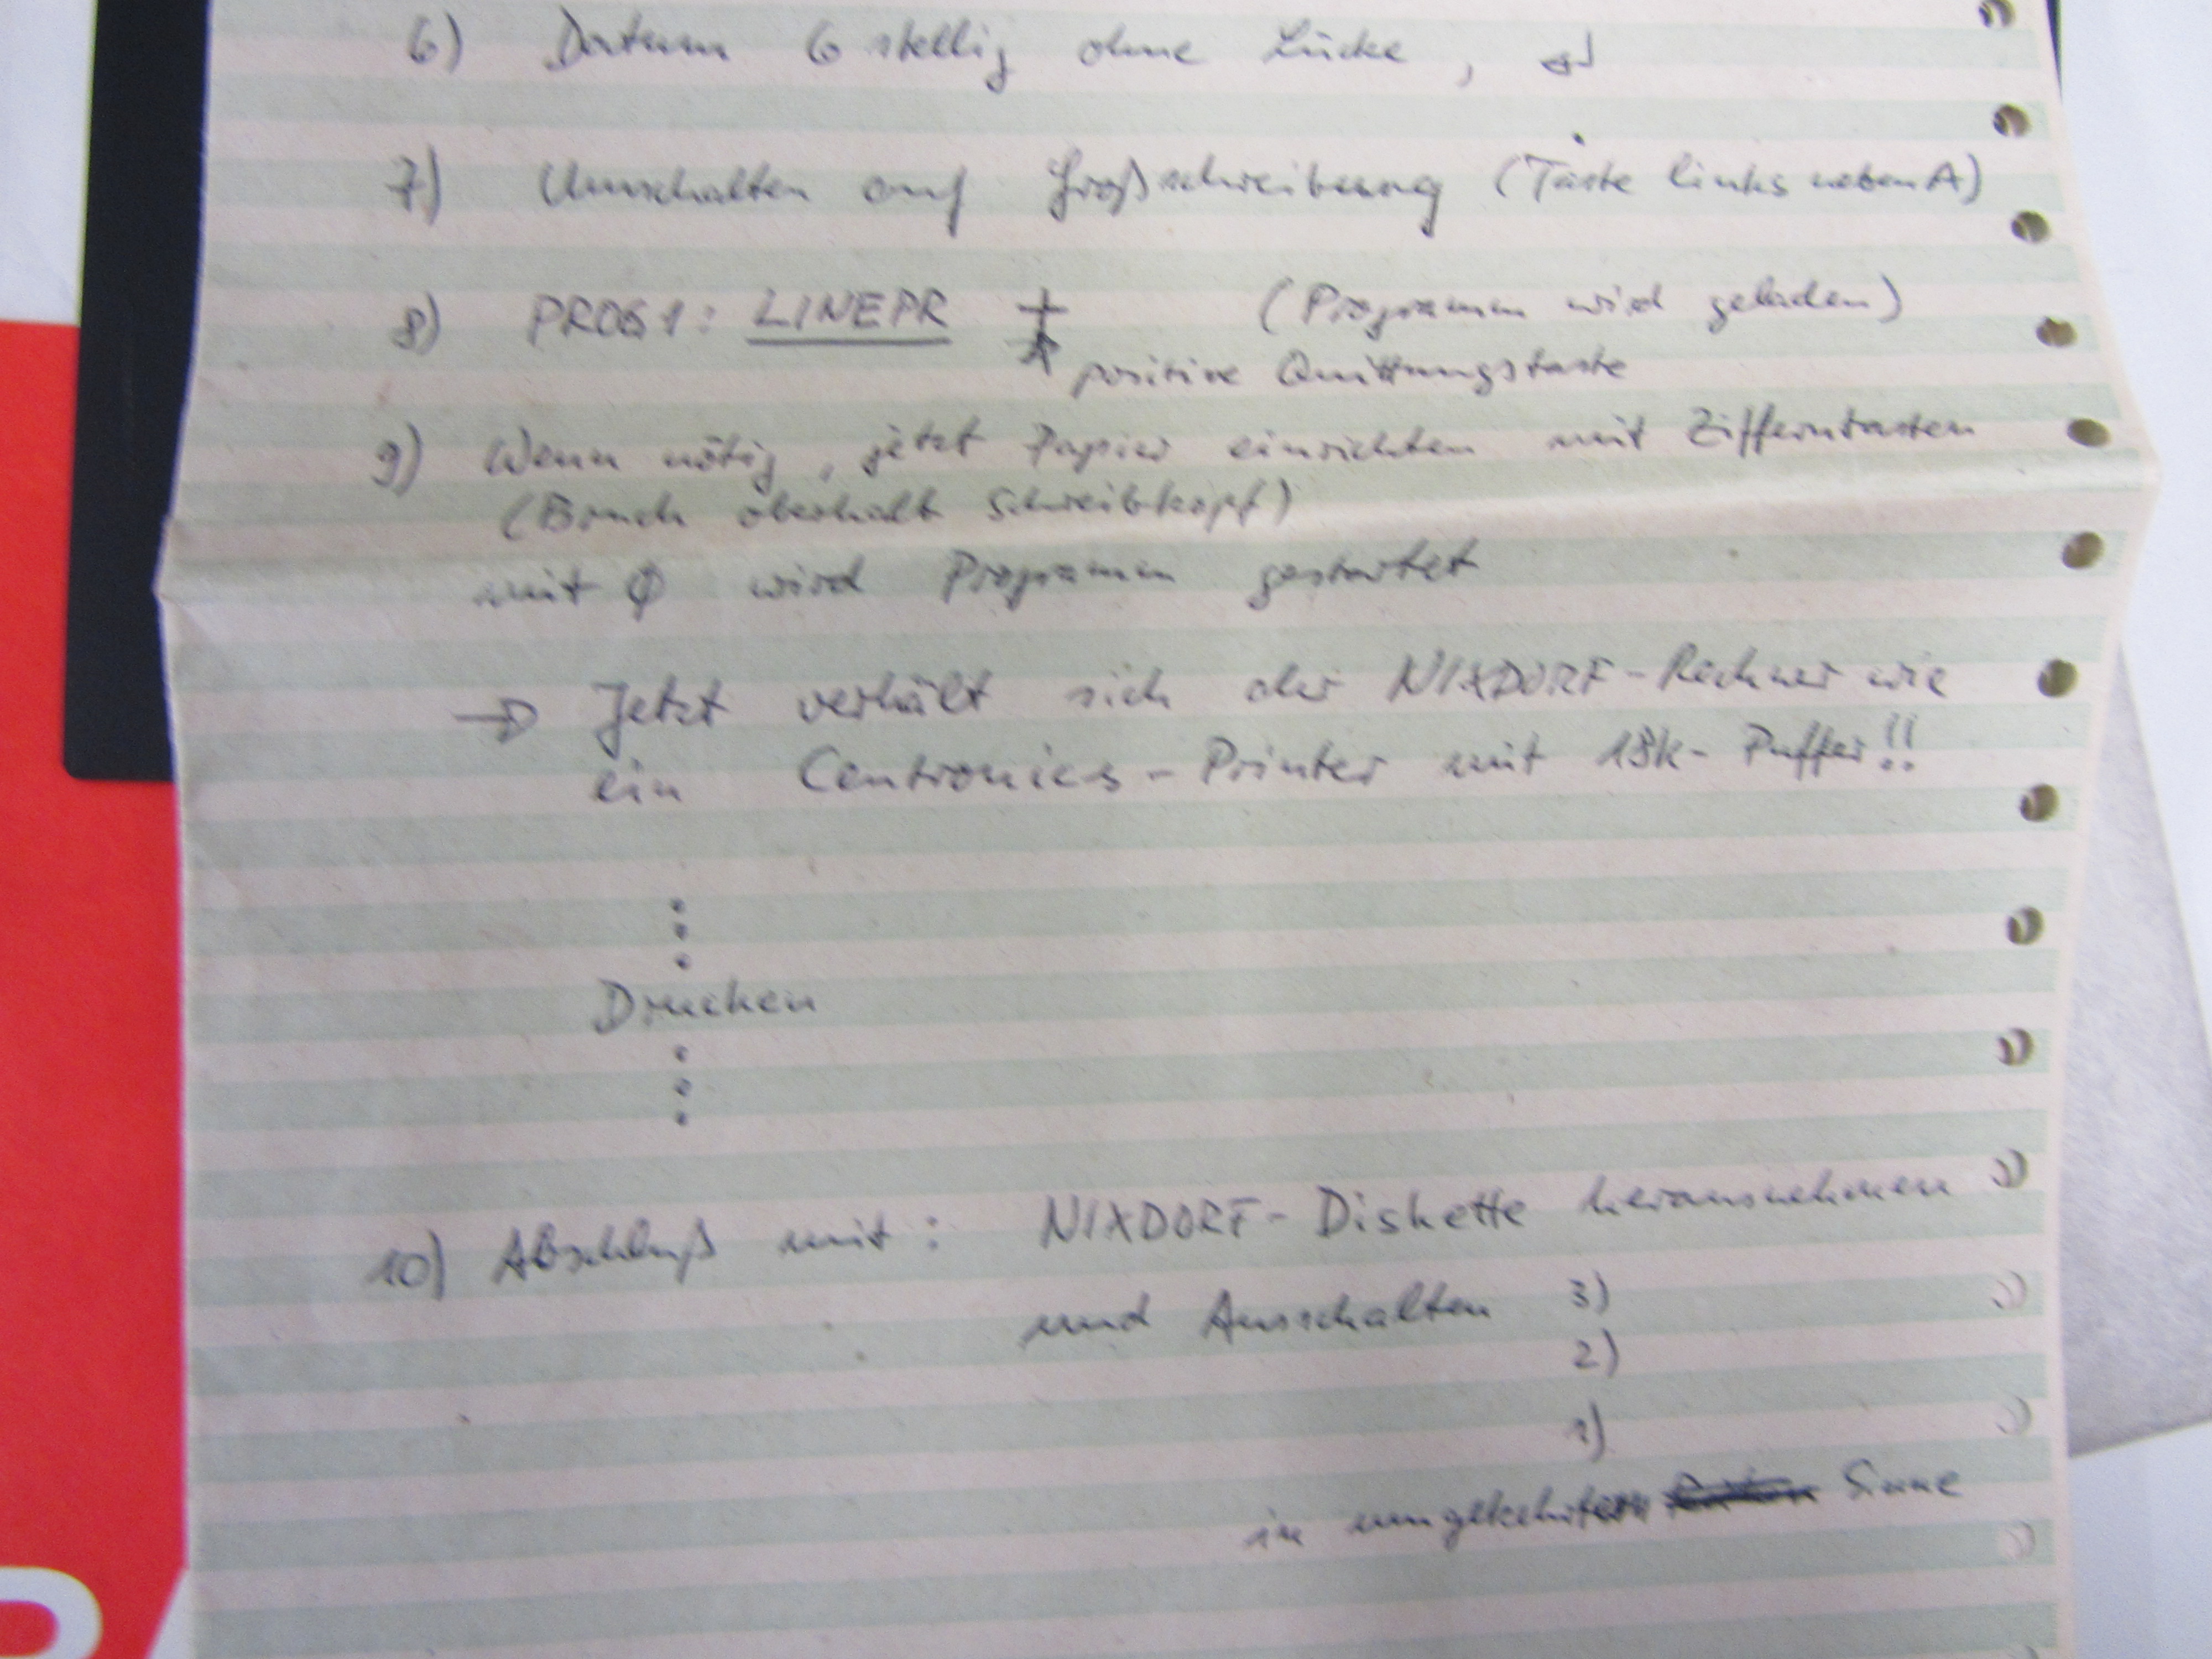 6) Datum 6 stellig ohne Lücke, ↵
7) Umschalten auf Großschreibung (Taste links neben A)
8) PROG1: LINEPR + (Programm wird geladen)
positive Quittungstaste
9) Wenn nötig, jetzt Papier einrichten mit Zifferntasten
(Bruch oberhalb Schreibkopf)
mit Ø wird Programm gestartet
→ Jetzt verhält sich der NIXDORF-Rechner wie
ein Centronics-Printer mit 18k-Puffer!!
:
Drucken
:
10) Abschluß mit: NIXDORF-Diskette herausnehmen
und Ausschalten 3)
2)
1)
in umgekehrtem Sinne